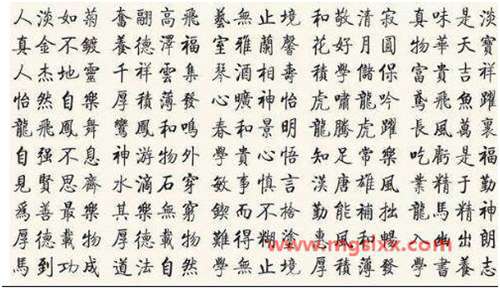 人淡如菊 奮翩高飛 藝無止境 和敬清寂 真味是淡
真金不鍍 養德澤福 室雅蘭馨 花好月圓 物華天寶
人杰地靈 千祥雲集 琴酒相壽 學儲 富貴吉祥
怡然自樂 厚積薄發 心曠神怡 虎嘯龍吟 鳶飛魚躍
龍飛鳳舞 鸞鳳和鳴 春和景明 龍騰虎躍 長風萬裏
自强不息 神游物外 學貴心悟 知足常樂 吃虧是福
見賢思齊 水滴石穿 敏事慎言 漢唐雄風 業精于勤
爲善最樂 其樂無窮 鍥而不捨 勤能補拙 龍馬精神
厚德載物 難得糊塗 和暢 入出朗
馬到功成 道法自然 學無止境 厚積薄發 學書志
www.mgslxx.com